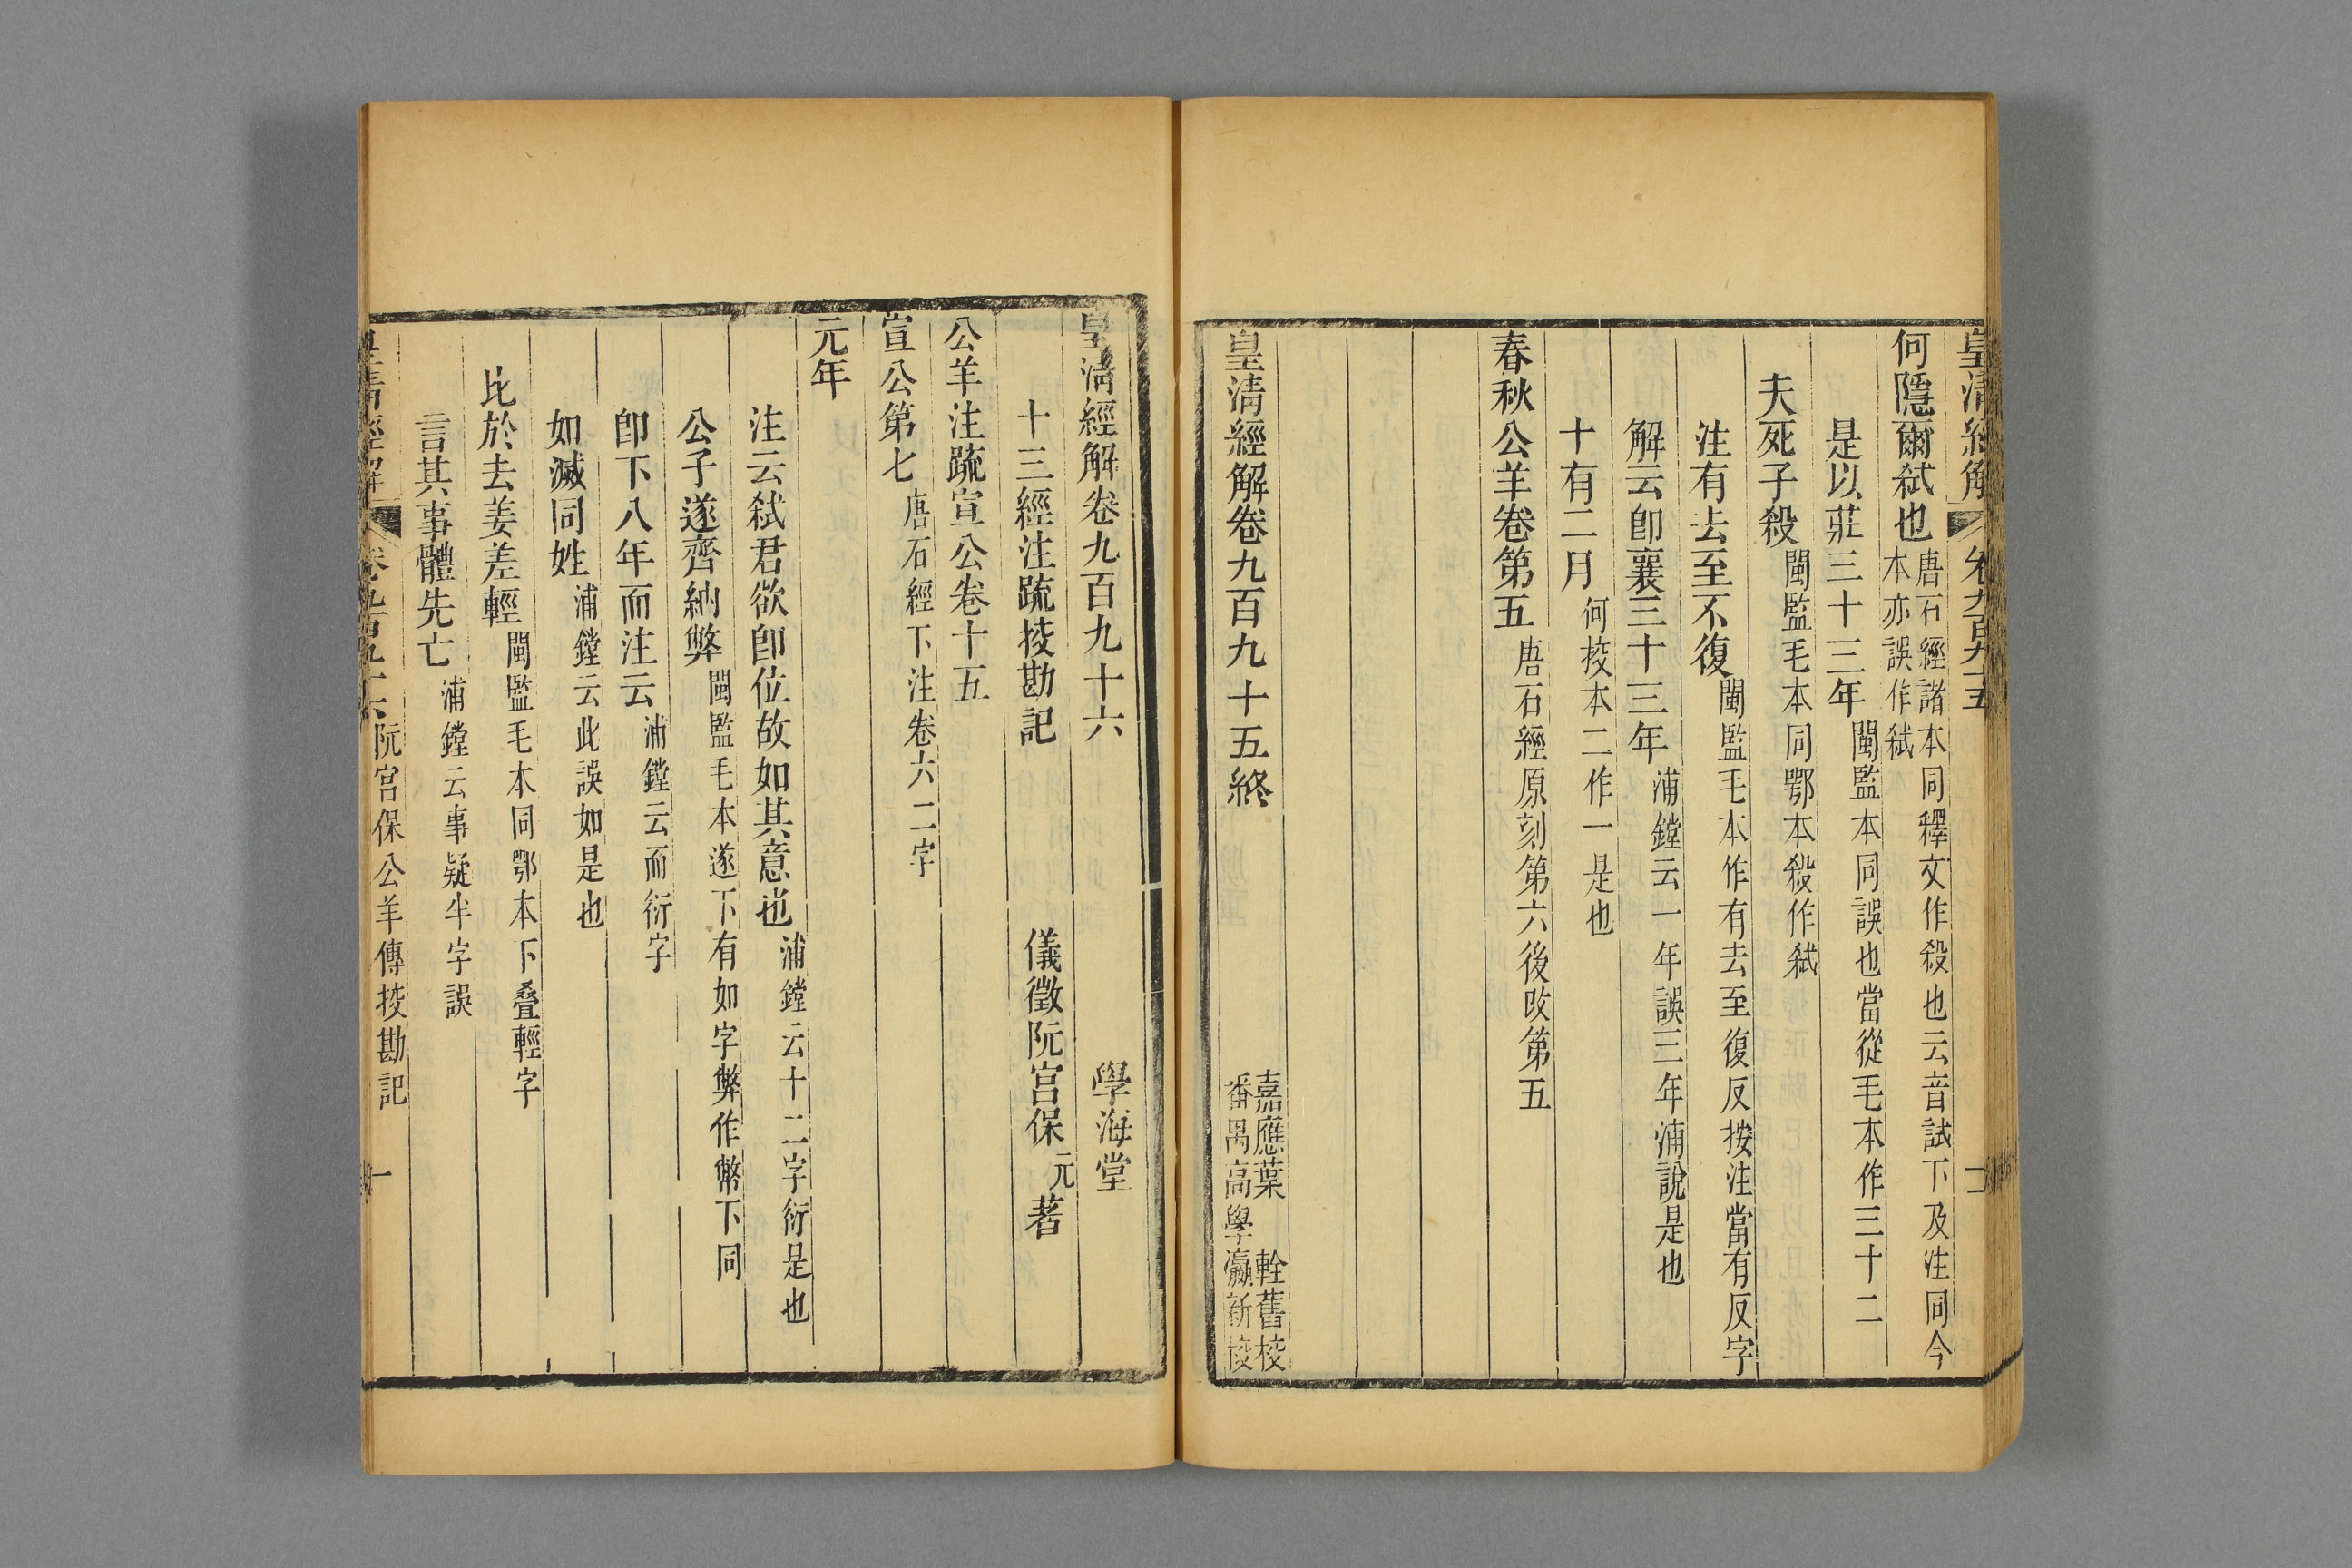 皇清經解 卷九百九十五
何隱爾弑也唐石經諸本同釋文作殺也云音試下及注同今本亦誤作弑
是以莊三十三年閩監本同誤也當從毛本作三十二
夫死子殺閩監毛本同鄂本殺作弑
注有去至不復閩監毛本作有去至復反按注當有反字
解云卽襄三十三年浦鏜云一年誤三年浦說是也
十有二月何挍本二作一是也
春秋公羊卷第五唐石經原刻第六後改第五
皇清經解卷九百九十五終
嘉應葉輇舊校
番禺高學瀛新校
皇清經解卷九百九十六 學海堂
十三經注疏挍勘記 儀徵阮宮保元著
公羊注疏宣公卷十五
宣公第七唐石經下注卷六二字
元年
注云弑君欲卽位故如其意也浦鏜云十二字衍是也
公子遂齊納弊閩監毛本遂下有如字弊作幣下同
卽下八年而注云浦鏜云而衍字
如滅同姓浦鏜云此誤如是也
比於去姜差輕閩監毛本同鄂本下叠輕字
言其事體先亡浦鏜云事疑半字誤
皇清經解 卷九百九十六 阮宮保公羊傳挍勘記 一